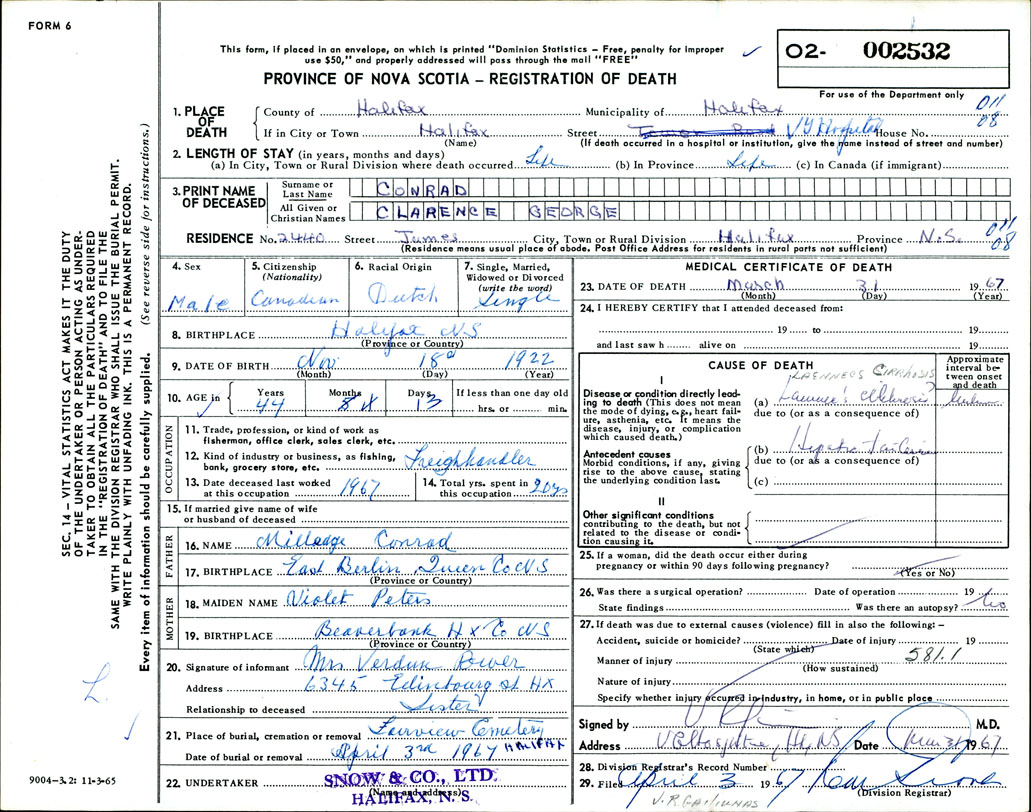 FORM 6
This form, if placed in an envelope, on which is printed "Dominion Statistics – Free, penalty for improper
use $50," and properly addressed will pass through the mail "FREE"
PROVINCE OF NOVA SCOTIA – REGISTRATION OF DEATH
02- 002532
For use of the Department only
011
08
1. PLACE OF DEATH
County of Halifax Municipality of Halifax
If in City or Town Halifax Street VG Hospital House No.
(Name) (If death occurred in a hospital or institution, give the name instead of street and number)
2. LENGTH OF STAY (in years, months and days)
(a) In City, Town or Rural Division where death occurred. Life (b) In Province Life (c) In Canada (if immigrant)
3. PRINT NAME OF DECEASED
Surname or Last Name CONRAD
All Given or Christian Names CLARENCE GEORGE
RESIDENCE No. 2440 Street James City, Town or Rural Division Halifax Province N.S.
011
08
(Residence means usual place of abode. Post Office Address for residents in rural parts not sufficient)
4. Sex
Male
5. Citizenship (Nationality)
Canadian
6. Racial Origin
Dutch
7. Single, Married, Widowed or Divorced (write the word)
Single
8. BIRTHPLACE Halifax N S
(Province or Country)
9. DATE OF BIRTH Nov 18th 1922
(Month) (Day) (Year)
10. AGE in Years Months Days If less than one day old
44 13 hrs. or min.
OCCUPATION
11. Trade, profession, or kind of work as
fisherman, office clerk, sales clerk, etc.
12. Kind of industry or business, as fishing,
bank, grocery store, etc. Freighthandler
13. Date deceased last worked
at this occupation 1967
14. Total yrs. spent in
this occupation 20 yrs
15. If married give name of wife
or husband of deceased
FATHER
16. NAME Milledge Conrad
17. BIRTHPLACE East Berlin Queen Co N S
(Province or Country)
MOTHER
18. MAIDEN NAME Violet Peters
19. BIRTHPLACE Beaverbank Hx Co N S
(Province or Country)
20. Signature of informant Mrs Verdun Power
Address 6345 Edinbourg st. Hx
Relationship to deceased Sister
21. Place of burial, cremation or removal Fairview Cemetery
HALIFAX
Date of burial or removal April 3rd 1967
22. UNDERTAKER SNOW & CO., LTD.
(Name and address)
HALIFAX, N. S.
MEDICAL CERTIFICATE OF DEATH
23. DATE OF DEATH March 31 1967
(Month) (Day) (Year)
24. I HEREBY CERTIFY that I attended deceased from:
19 to 19
and last saw h alive on 19
CAUSE OF DEATH
Approximate interval between onset and death
I
LAENNECS CIRRHOSIS
Disease or condition directly leading to death (This does not mean the mode of dying, e.g., heart failure, asthenia, etc. It means the disease, injury, or complication which caused death.)
(a) Laennec's
due to (or as a consequence of)
Antecedent causes
Morbid conditions, if any, giving rise to the above cause, stating the underlying condition last.
(b) Hepatic
due to (or as a consequence of)
(c)
II
Other significant conditions
contributing to the death, but not related to the disease or condition causing it.
25. If a woman, did the death occur either during
pregnancy or within 90 days following pregnancy?
(Yes or No)
26. Was there a surgical operation? Date of operation 19
State findings Was there an autopsy? No
27. If death was due to external causes (violence) fill in also the following: –
Accident, suicide or homicide? Date of injury 19
(State which)
581.1
Manner of injury
(How sustained)
Nature of injury
Specify whether injury occurred in industry, in home, or in public place
Signed by M.D.
Address V G Hospital, Hx, NS Date Mar 31 1967
28. Division Registrar's Record Number
29. Filed April 3 1967
(Division Registrar)
SEC. 14 – VITAL STATISTICS ACT MAKES IT THE DUTY
OF THE UNDERTAKER OR PERSON ACTING AS UNDER-
TAKER TO OBTAIN ALL THE PARTICULARS REQUIRED
IN THE "REGISTRATION OF DEATH" AND TO FILE THE
SAME WITH THE DIVISION REGISTRAR WHO SHALL ISSUE THE BURIAL PERMIT.
WRITE PLAINLY WITH UNFADING INK. THIS IS A PERMANENT RECORD.
Every item of information should be carefully supplied. (See reverse side for instructions.)
L.
9004–3.2: 11-3-65